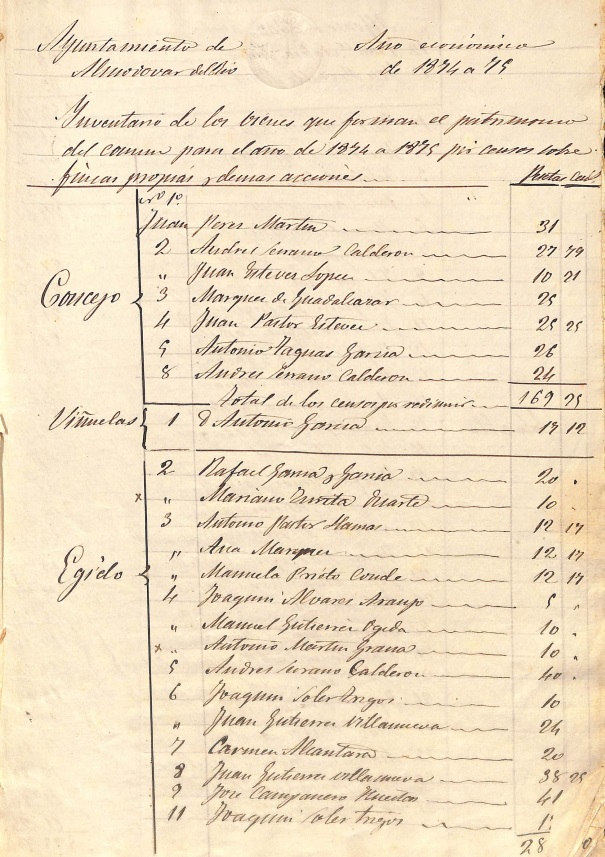 Ayuntamiento de Año económico
Almodovar del Rio de 1874 a 75
Inventario de los bienes que forman el patrimonio
del comun para el año de 1874 a 1875 por censos sobre
fincas propias y demas acciones Pesetas Cent.s
nº 1º
Juan Peres Martin 31
2 Andres Serrano Calderon 27 79
" Juan Esteves Lopez 10 21
Concejo 3 Marques de Guadalcazar 25
4 Juan Pastor Estevez 25 25
5 Antonio Yaguas Garcia 26
8 Andres Serrano Calderon 24
Total de los censos por redimir 169 25
Viñuelas 1 D Antonio Garcia 17 12
2 Rafael Garcia y Garcia 20 "
x " Mariano Zurita Duarte 10 "
3 Antonio Pastor Llamas 12 17
" Ana Marquez 12 17
Egido " Manuela Prieto Conde 12 17
4 Joaquin Alvares Araujo 5 "
" Manuel Gutierrez Ogeda 10 "
x " Antonio Martin Grana 10 "
5 Andres Serrano Calderon 40 "
6 Joaquin Soler Trigos 10
" Juan Gutierrez Villanueva 24
7 Carmen Alcantara 20
8 Juan Gutierrez Villanueva 38 25
9 Jose Campanero Huertas 41
11 Joaquin Soler Trigos
28